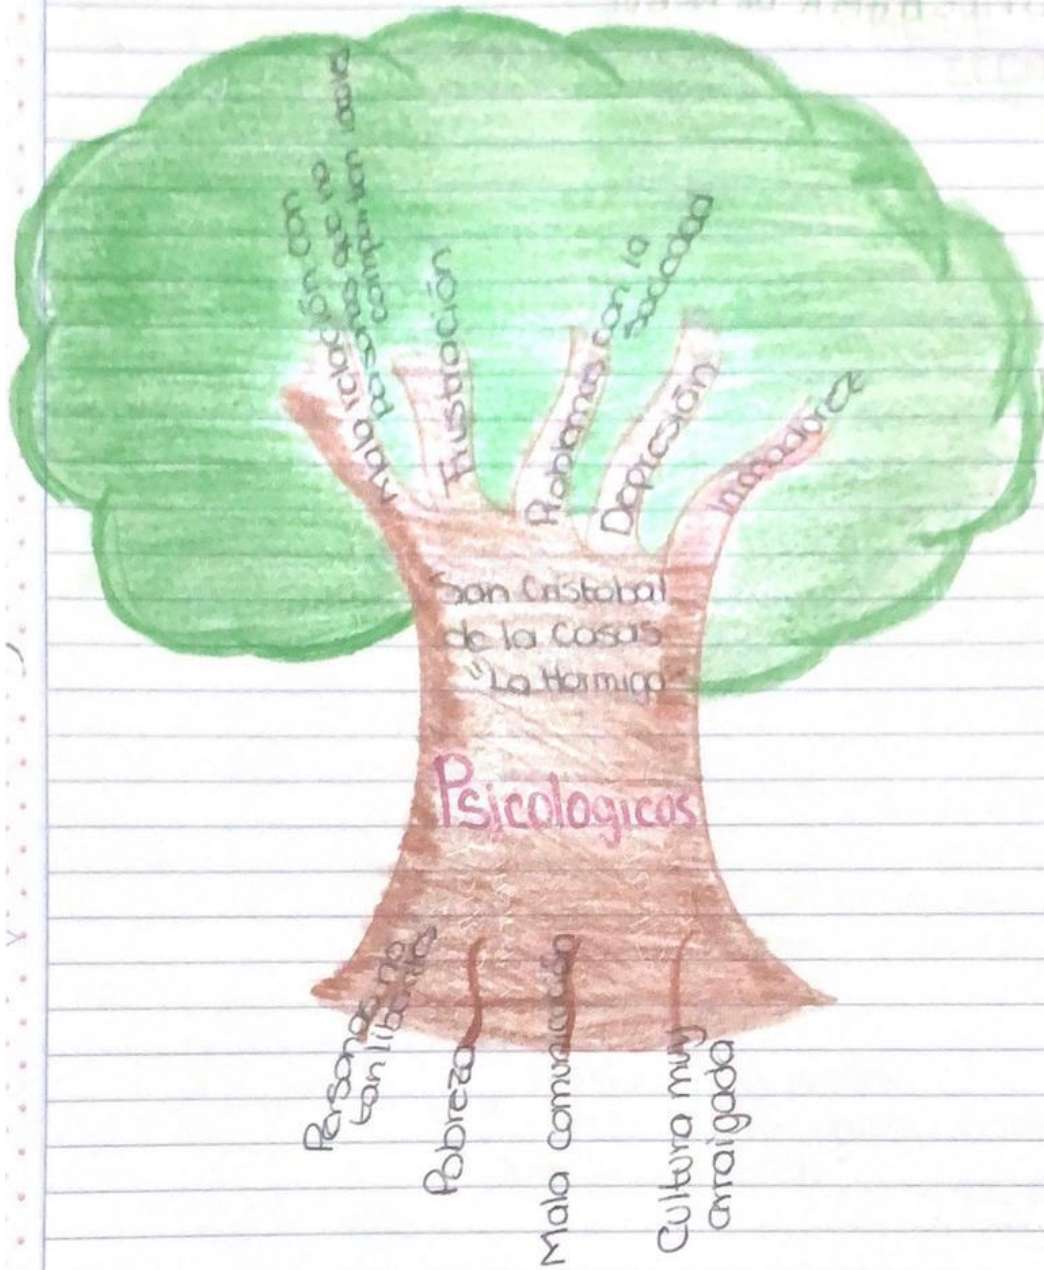 Mala relación con
personas que no
compartan
Frustración
Problemas con la
sociedad
Depresión
Inmadurez
San Cristobal
de la Casas
"La Hormiga"
Psicologicos
Personas no
tan liberales
Pobreza
Mala comunicación
Cultura muy
arraigada